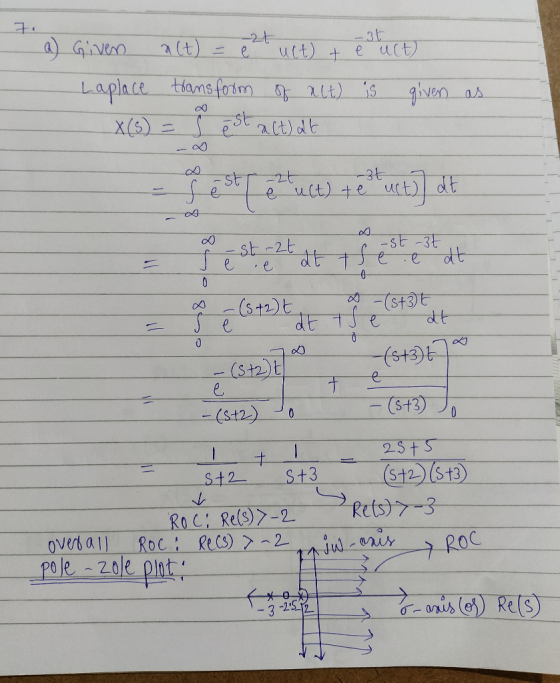 7.
a) Given x(t) = e^{-2t} u(t) + e^{-3t} u(t)
Laplace transform of x(t) is given as
X(s) = ∫_{-∞}^{∞} e^{-st} x(t) dt
= ∫_{-∞}^{∞} e^{-st} [ e^{-2t} u(t) + e^{-3t} u(t) ] dt
= ∫_{0}^{∞} e^{-st} . e^{-2t} dt + ∫_{0}^{∞} e^{-st} . e^{-3t} dt
= ∫_{0}^{∞} e^{-(s+2)t} dt + ∫_{0}^{∞} e^{-(s+3)t} dt
= e^{-(s+2)t} / -(s+2) ]_{0}^{∞} + e^{-(s+3)t} / -(s+3) ]_{0}^{∞}
= 1/(s+2) + 1/(s+3) = 2s+5 / (s+2)(s+3)
ROC: Re(s) > -2 Re(s) > -3
overall ROC: Re(s) > -2
pole-zole plot:
jω-axis ROC
-3 -2.5 -2 σ-axis (or) Re(s)